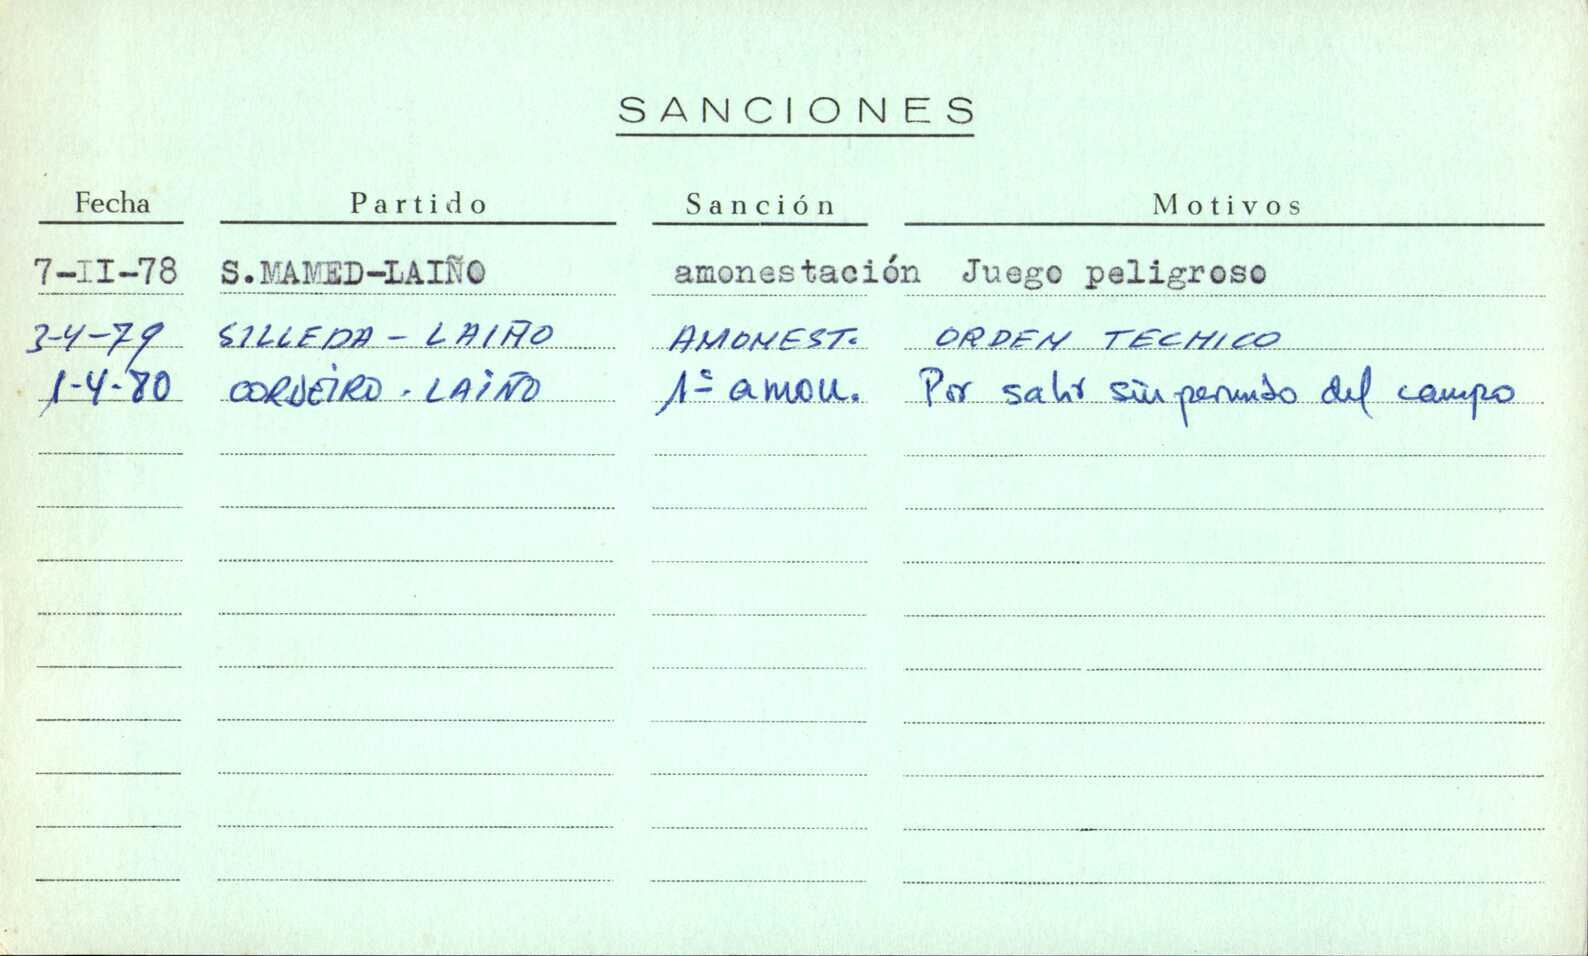 SANCIONES
Fecha Partido Sanción Motivos
7-II-78 S.MAMED-LAIÑO amonestación Juego peligroso
3-4-79 SILLEDA - LAIÑO AMONEST. ORDEN TECNICO
1-4-80 CORDEIRO - LAIÑO 1ª amon. Por salir sin permiso del campo